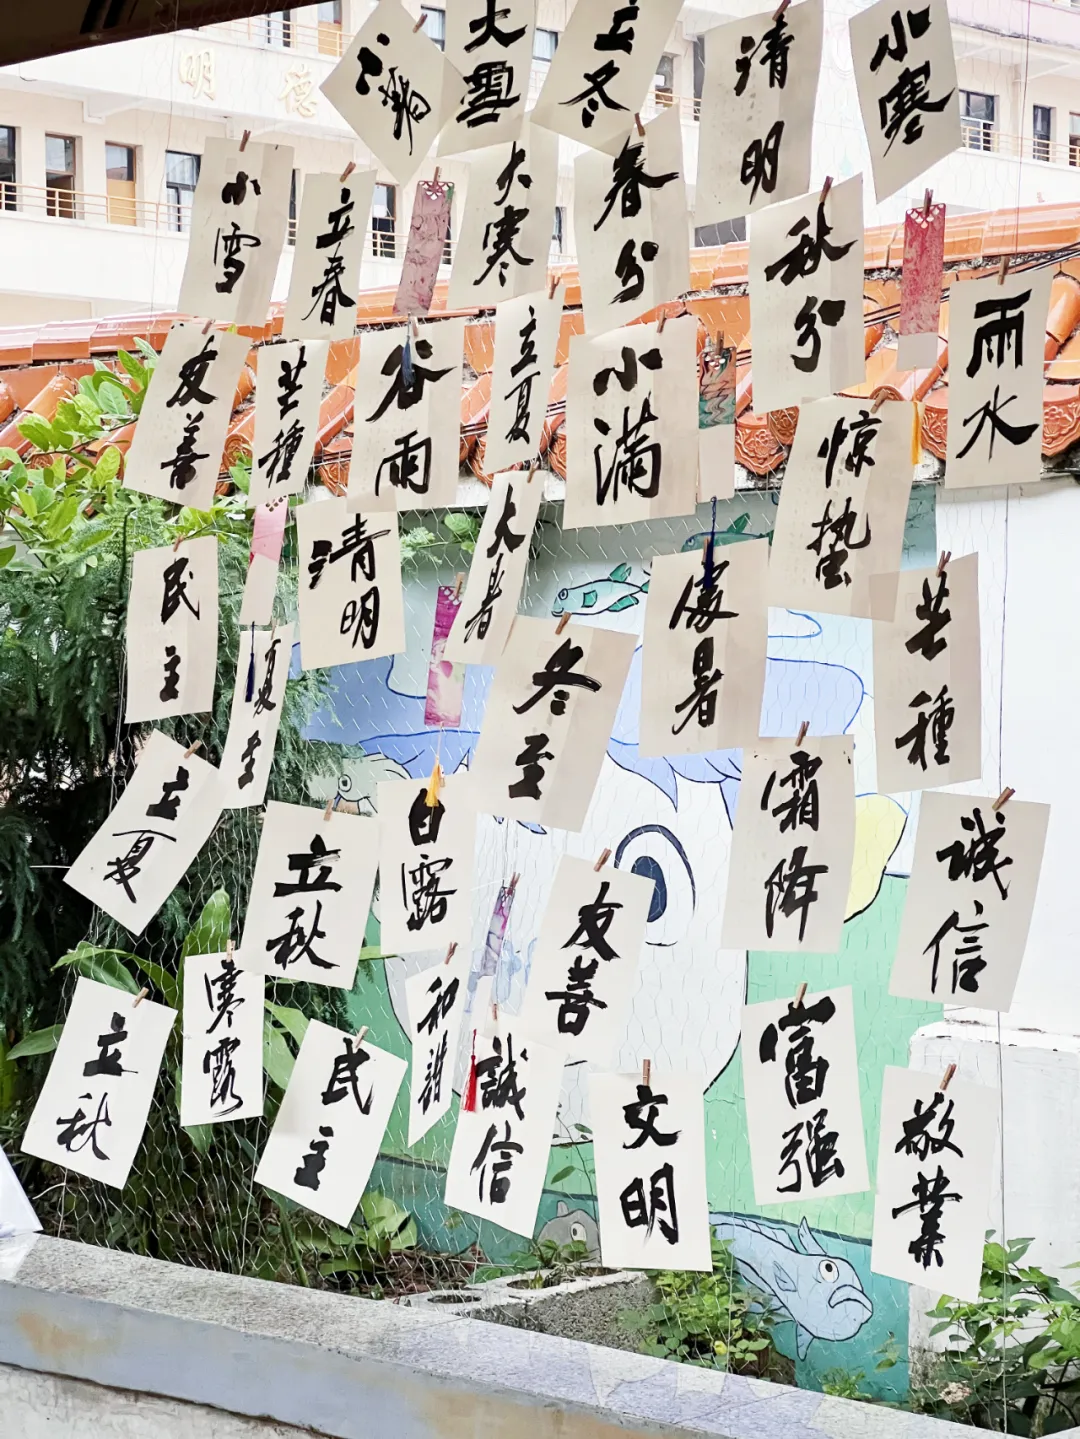 明德
小满
大雪
立冬
清明
小寒
小雪
立春
大寒
春分
秋分
雨水
友善
芒種
谷雨
立夏
小滿
惊蛰
民主
清明
大暑
處暑
芒種
夏至
冬至
立夏
立秋
白露
霜降
誠信
友善
寒露
和諧
立秋
民主
誠信
文明
富强
敬業